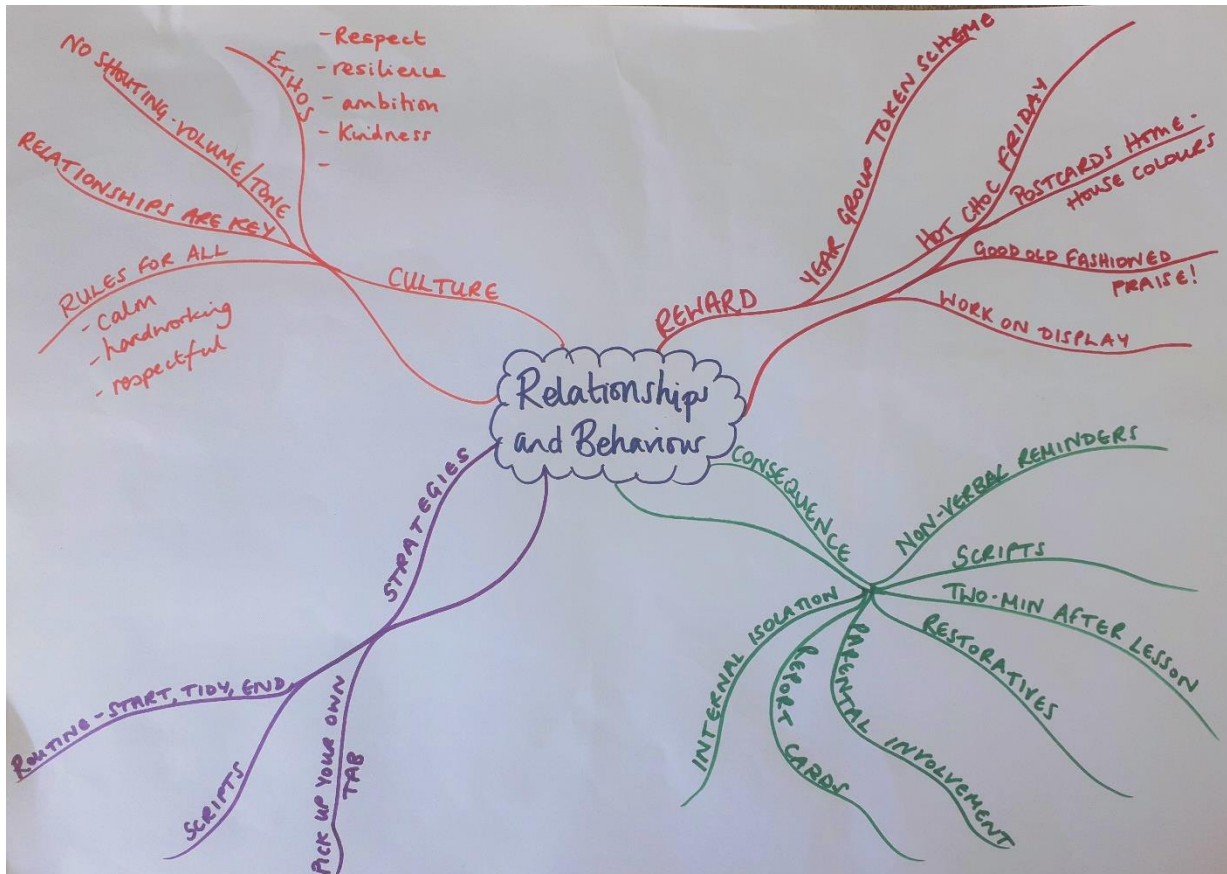 Relationships
and Behaviour
CULTURE
ETHOS
- Respect
- resilience
- ambition
- Kindness
-
NO SHOUTING-VOLUME/TONE
RELATIONSHIPS ARE KEY
RULES FOR ALL
- calm
- hardworking
- respectful
REWARD
YEAR GROUP TOKEN SCHEME
HOT CHOC FRIDAY
POSTCARDS HOME-
HOUSE COLOURS
GOOD OLD FASHIONED
PRAISE!
WORK ON DISPLAY
CONSEQUENCE
NON-VERBAL REMINDERS
SCRIPTS
TWO-MIN AFTER LESSON
RESTORATIVES
PARENTAL INVOLVEMENT
REPORT CARDS
INTERNAL ISOLATION
STRATEGIES
ROUTINE-START, TIDY, END.
SCRIPTS
PICK UP YOUR OWN
TAB